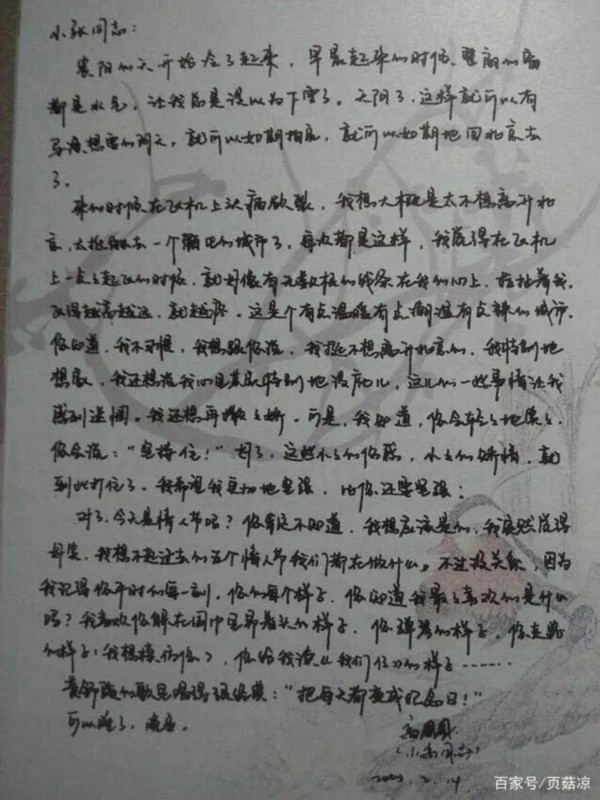 小张同志：
襄阳的天开始冷了起来，早晨起来的时候，壁的窗
都是水气，让我总是误以为下雪了。天阴了，这样就可以有
想要的阴天，就可以如期拍完，就可以如期地回北京去
了。
来的时候在飞机上头痛欲裂，我想大概是太不想离开北
京，太抵触去一个陌生的城市了，每次都是这样，我觉得在飞机
上一点点起飞的时候，就好像有无数根的线系在我的心上，拉扯着我，
飞得越高越远，就越疼。这是个有点温暖有点潮湿有点辣的城市，
你知道，我不习惯，我想跟你说，我挺不想离开北京的，我特别地
想家，我还想说我心里其实特别地没底儿，这儿的一些事情让我
感到迷惘。我还想再撒撒娇。可是，我知道，你会轻轻地摸摸
你会说：“坚持住！”好了，这些小小的伤感，小小的矫情，就
到此打住了。我希望我更加地坚强，比你还要坚强；
对了，今天是情人节吗？你肯定不知道，我想应该是的，我突然觉得
好笑，我想不起过去的五个情人节我们都在做什么。不过没关系，因为
我记得你平时的每一刻，你的每个样子，你知道我最最喜欢的是什么
吗？我喜欢你躲在围巾里昂着头的样子，你弹琴的样子，你走路
的样子（我想模仿你），你给我读《我们仨》的样子……
黄舒骏的歌里唱得很经典：“把每天都变成纪念日！”
可以睡了，晚安。
高圆圆
（小高同志）
2.14
百家号/页菇凉